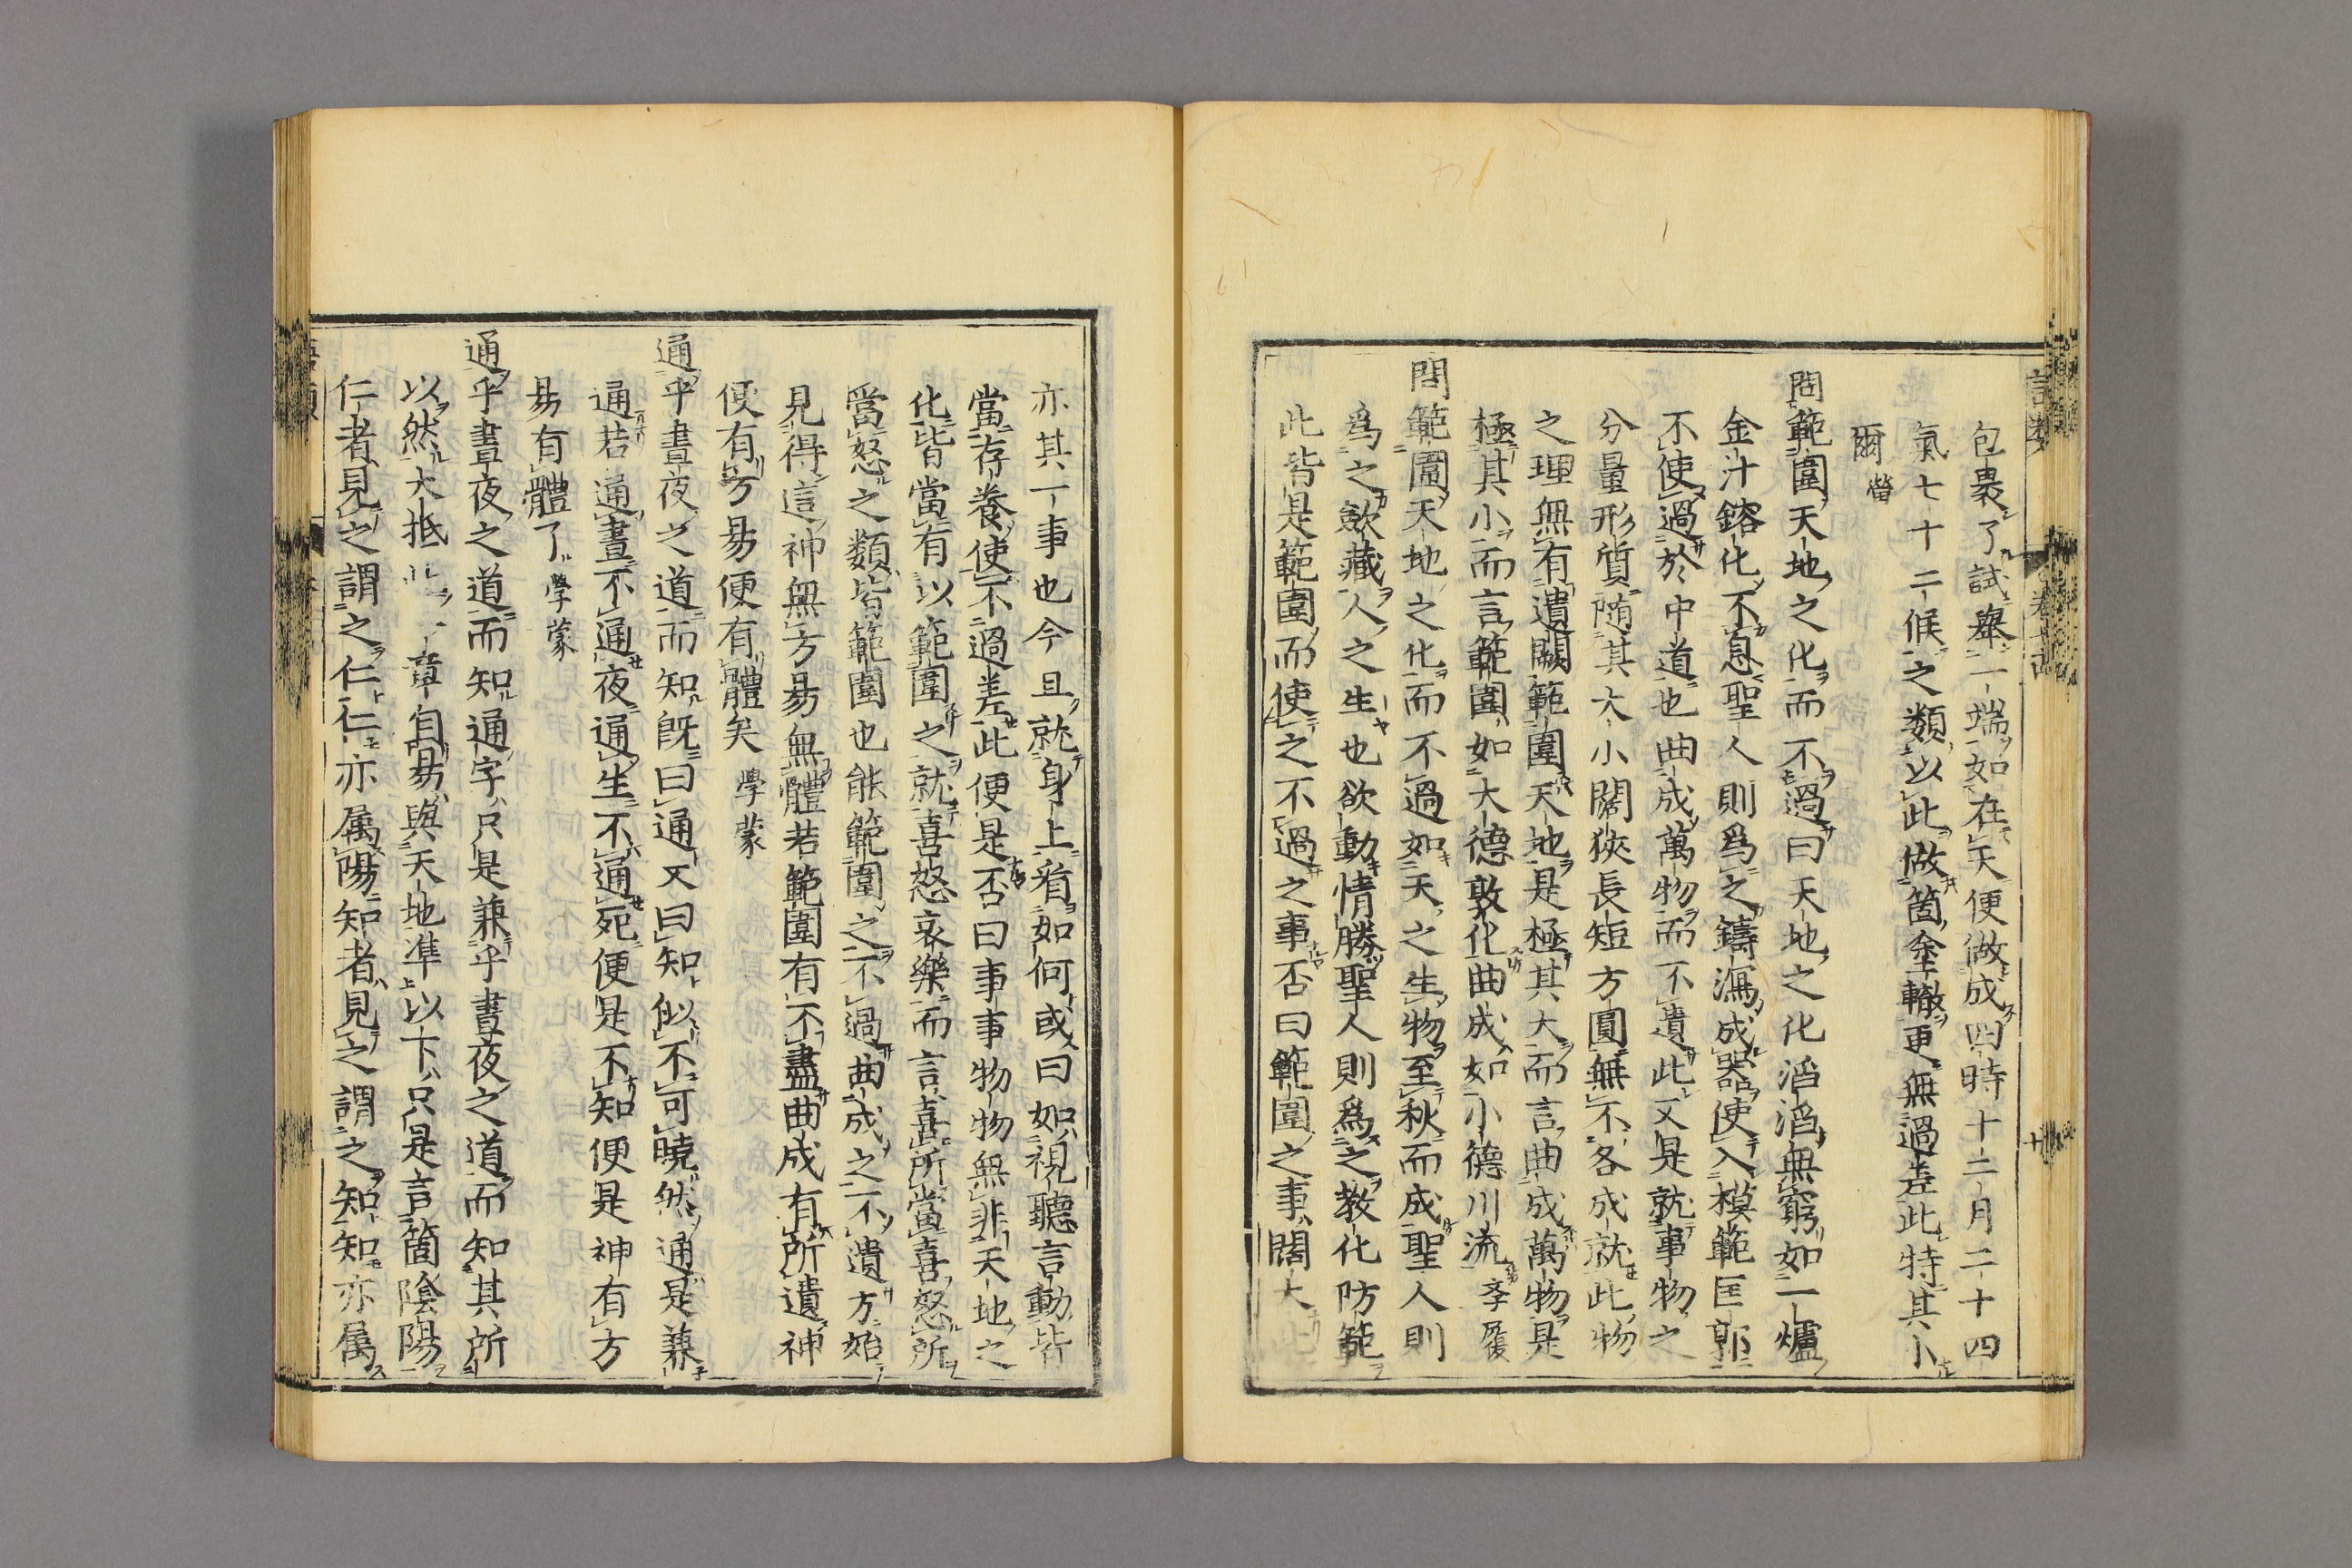 包裹了試舉一端如在天便做成四時十二月二十四
氣七十二候之類以此做箇塗轍更無過差此特其小
爾 㽦
問範圍天地之化而不過曰天地之化滔滔無窮如一爐
金汁鎔化不息聖人則爲之鑄瀉成器使入模範匡郭
不使過於中道也曲成萬物而不遺此又是就事物之
分量形質隨其大小闊狹長短方圓無不各成就此物
之理無有遺闕範圍天地是極其大而言曲成萬物是
極其小而言範圍如大德敦化曲成如小德川流 李履
問範圍天地之化而不過如天之生物至秋而成聖人則
爲之斂藏人之生也欲動情勝聖人則爲之教化防範
此皆是範圍而使之不過之事否曰範圍之事闊大
亦其一事也今且就身上看如何或曰如視聽言動皆
當存養使不過差此便是否曰事事物物無非天地之
化皆當有以範圍之就喜怒哀樂而言喜所當喜怒所
當怒之類皆範圍也能範圍之不過曲成之不遺方始
見得這神無方易無體若範圍有不盡曲成有所遺神
便有方易便有體矣 學蒙
通乎晝夜之道而知既曰通又曰知似不可曉然通是兼
通若通晝不通夜通生不通死便是不知便是神有方
易有體了 學蒙
通乎晝夜之道而知通字只是兼乎晝夜之道而知其所
以然大抵 章自易與天地準以下只是言箇陰陽
仁者見之謂之仁仁亦属陽知者見之謂之知知亦属